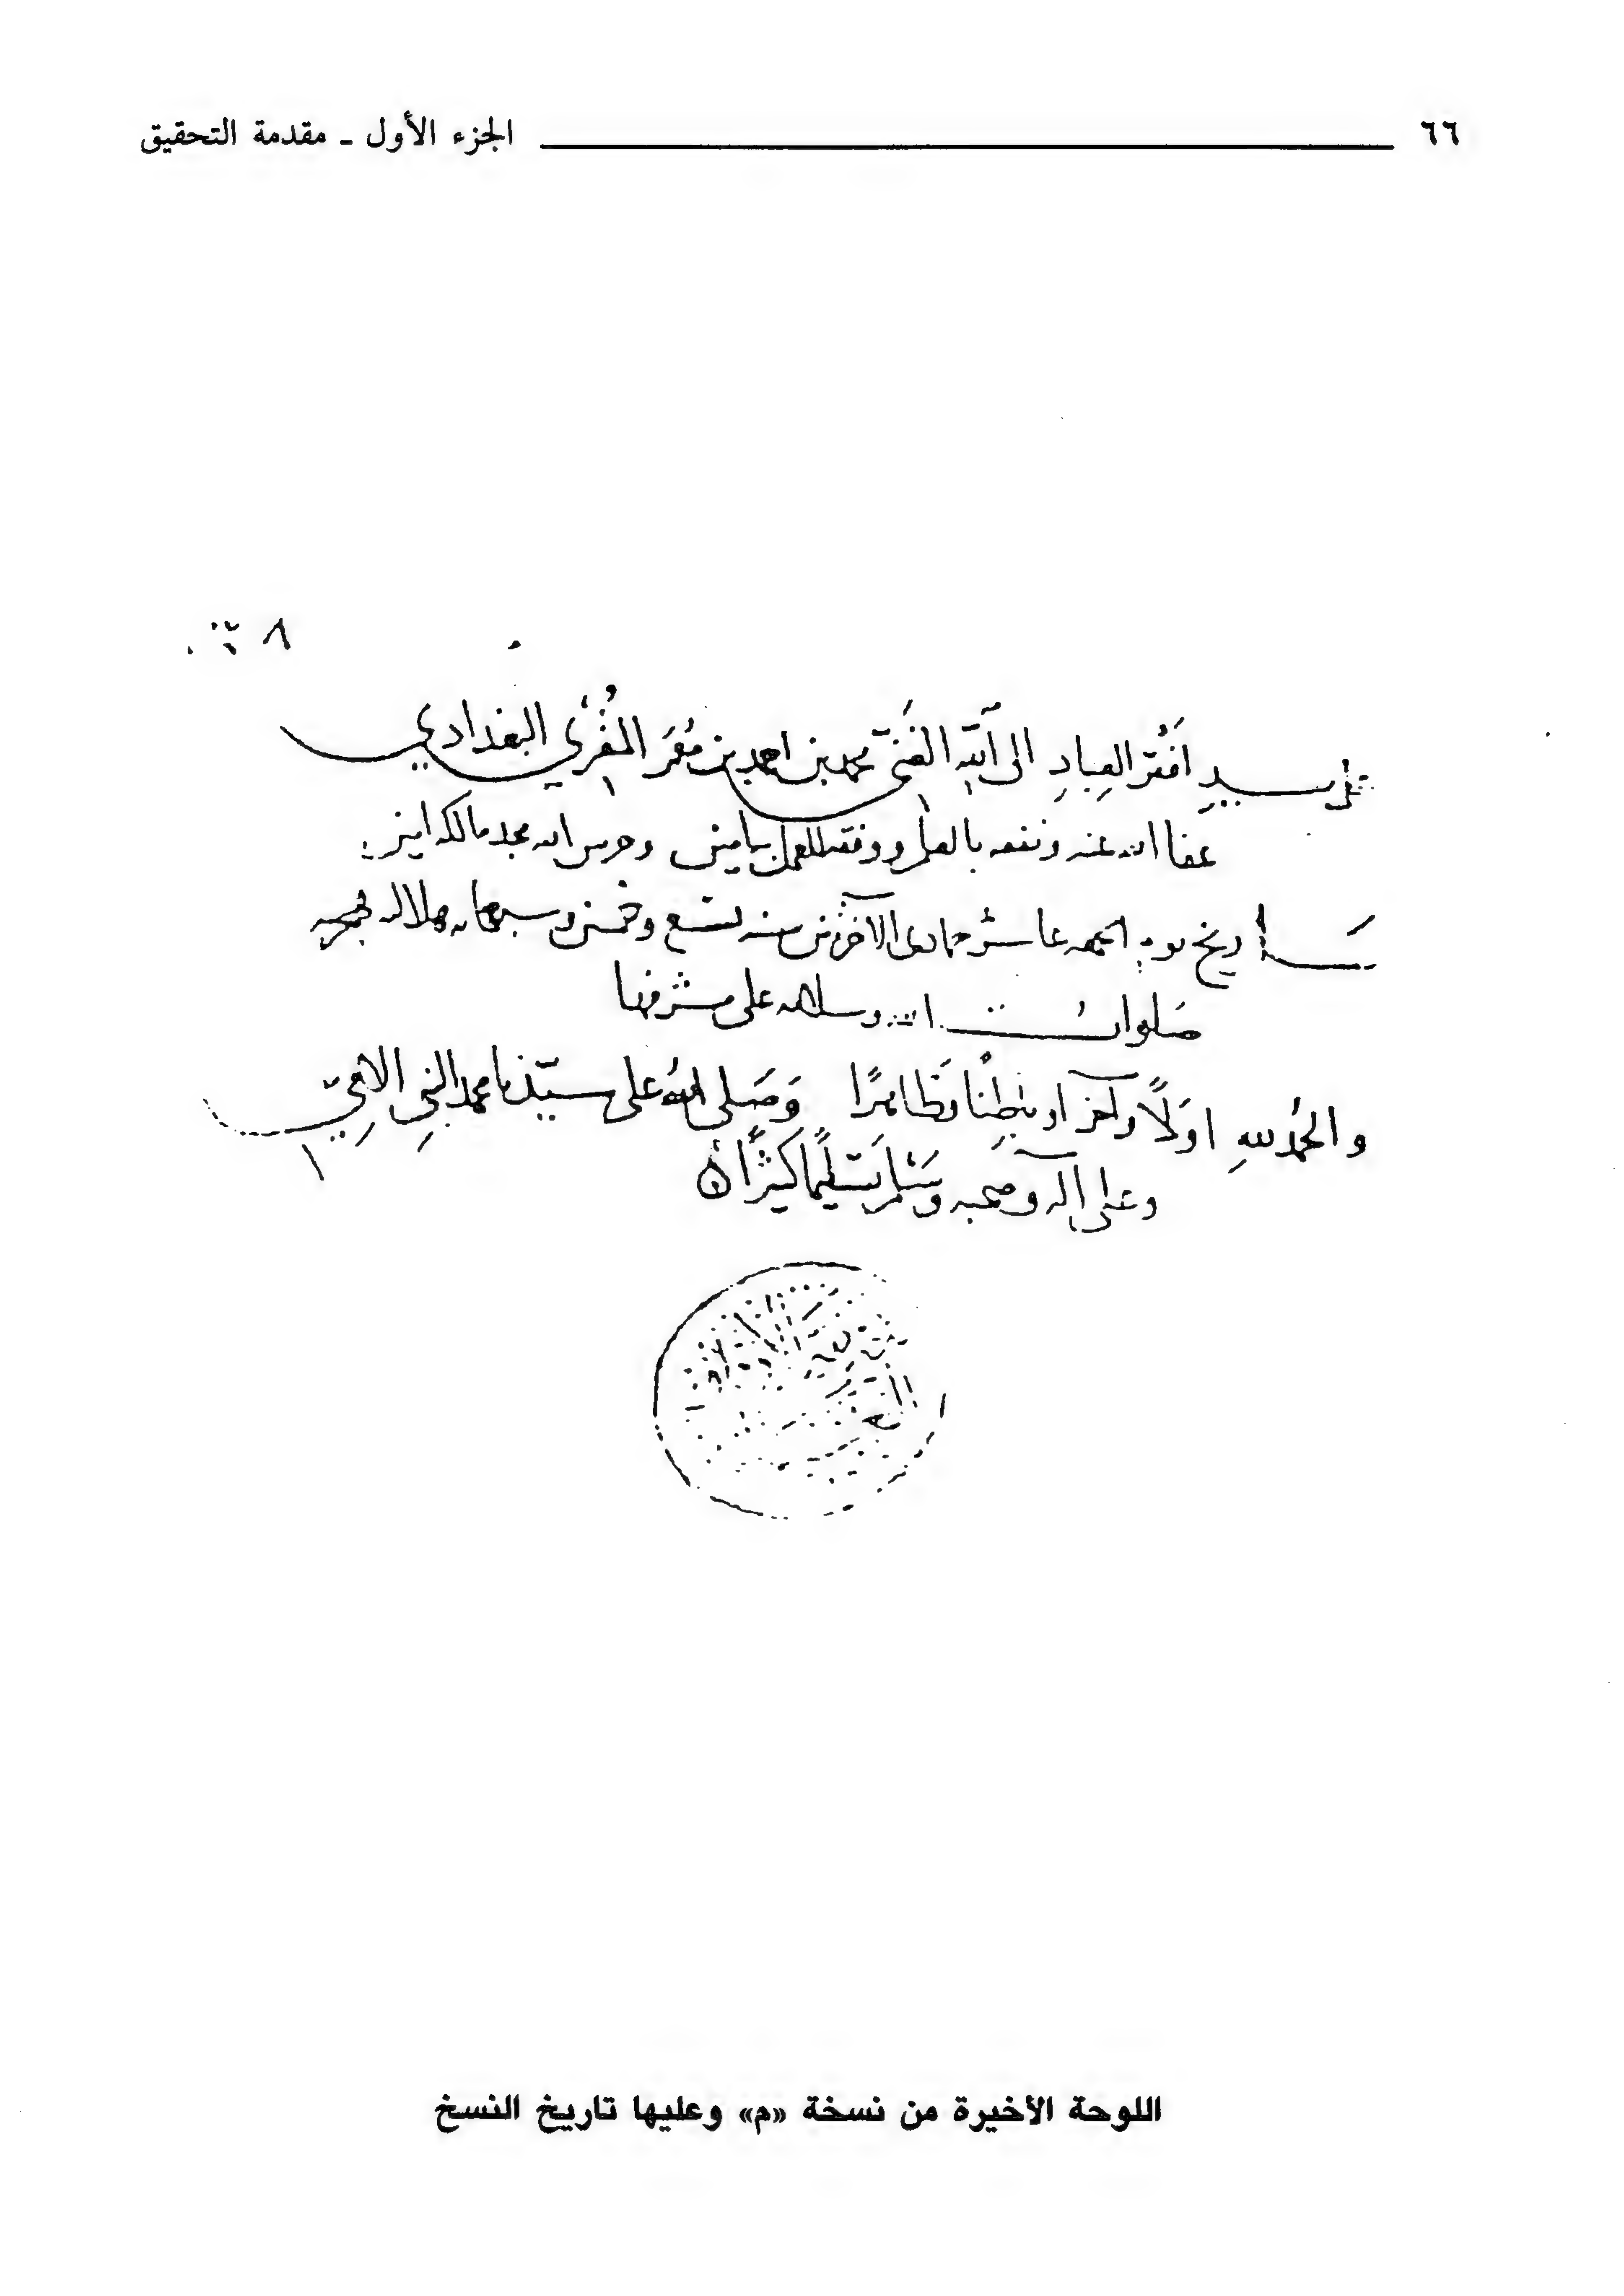 ٦٦ الجزء الأول ـ مقدمة التحقيق
٨
على يد افقر العباد الى الله الغني محمد بن احمد بن معمر المقري البغدادي
عفا الله عنه ونفعه بالعلم ووفقه للعمل بيامين وحرس الله مجد مالكه امين
تاريخ يوم الجمعه عاشر جمادى الآخر من سنه تسع وخمسين وسبعمايه هلاليه هجريه
صلوات الله وسلامه على مشرفها
والحمد لله اولًا وآخرا وباطنًا وظاهرًا وصلى الله على سيدنا محمد النبي الامي
وعلى آله وصحبه وسلم تسليمًا كثيرًا
اللوحة الأخيرة من نسخة «م» وعليها تاريخ النسخ